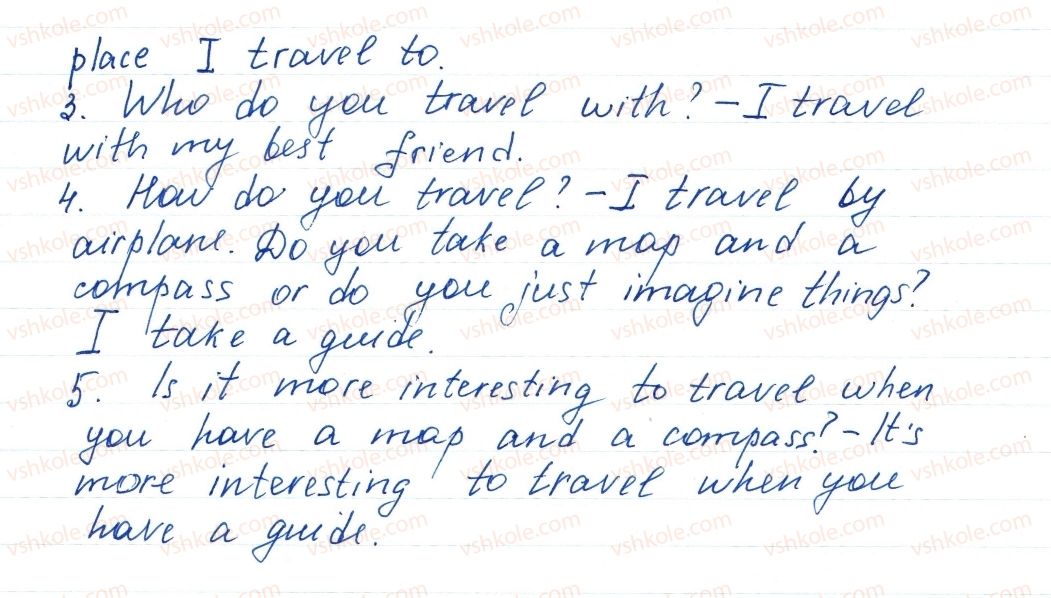 place I travel to.
3. Who do you travel with? – I travel
with my best friend.
4. How do you travel? – I travel by
airplane. Do you take a map and a
compass or do you just imagine things?
I take a guide.
5. Is it more interesting to travel when
you have a map and a compass? – It's
more interesting to travel when you
have a guide.